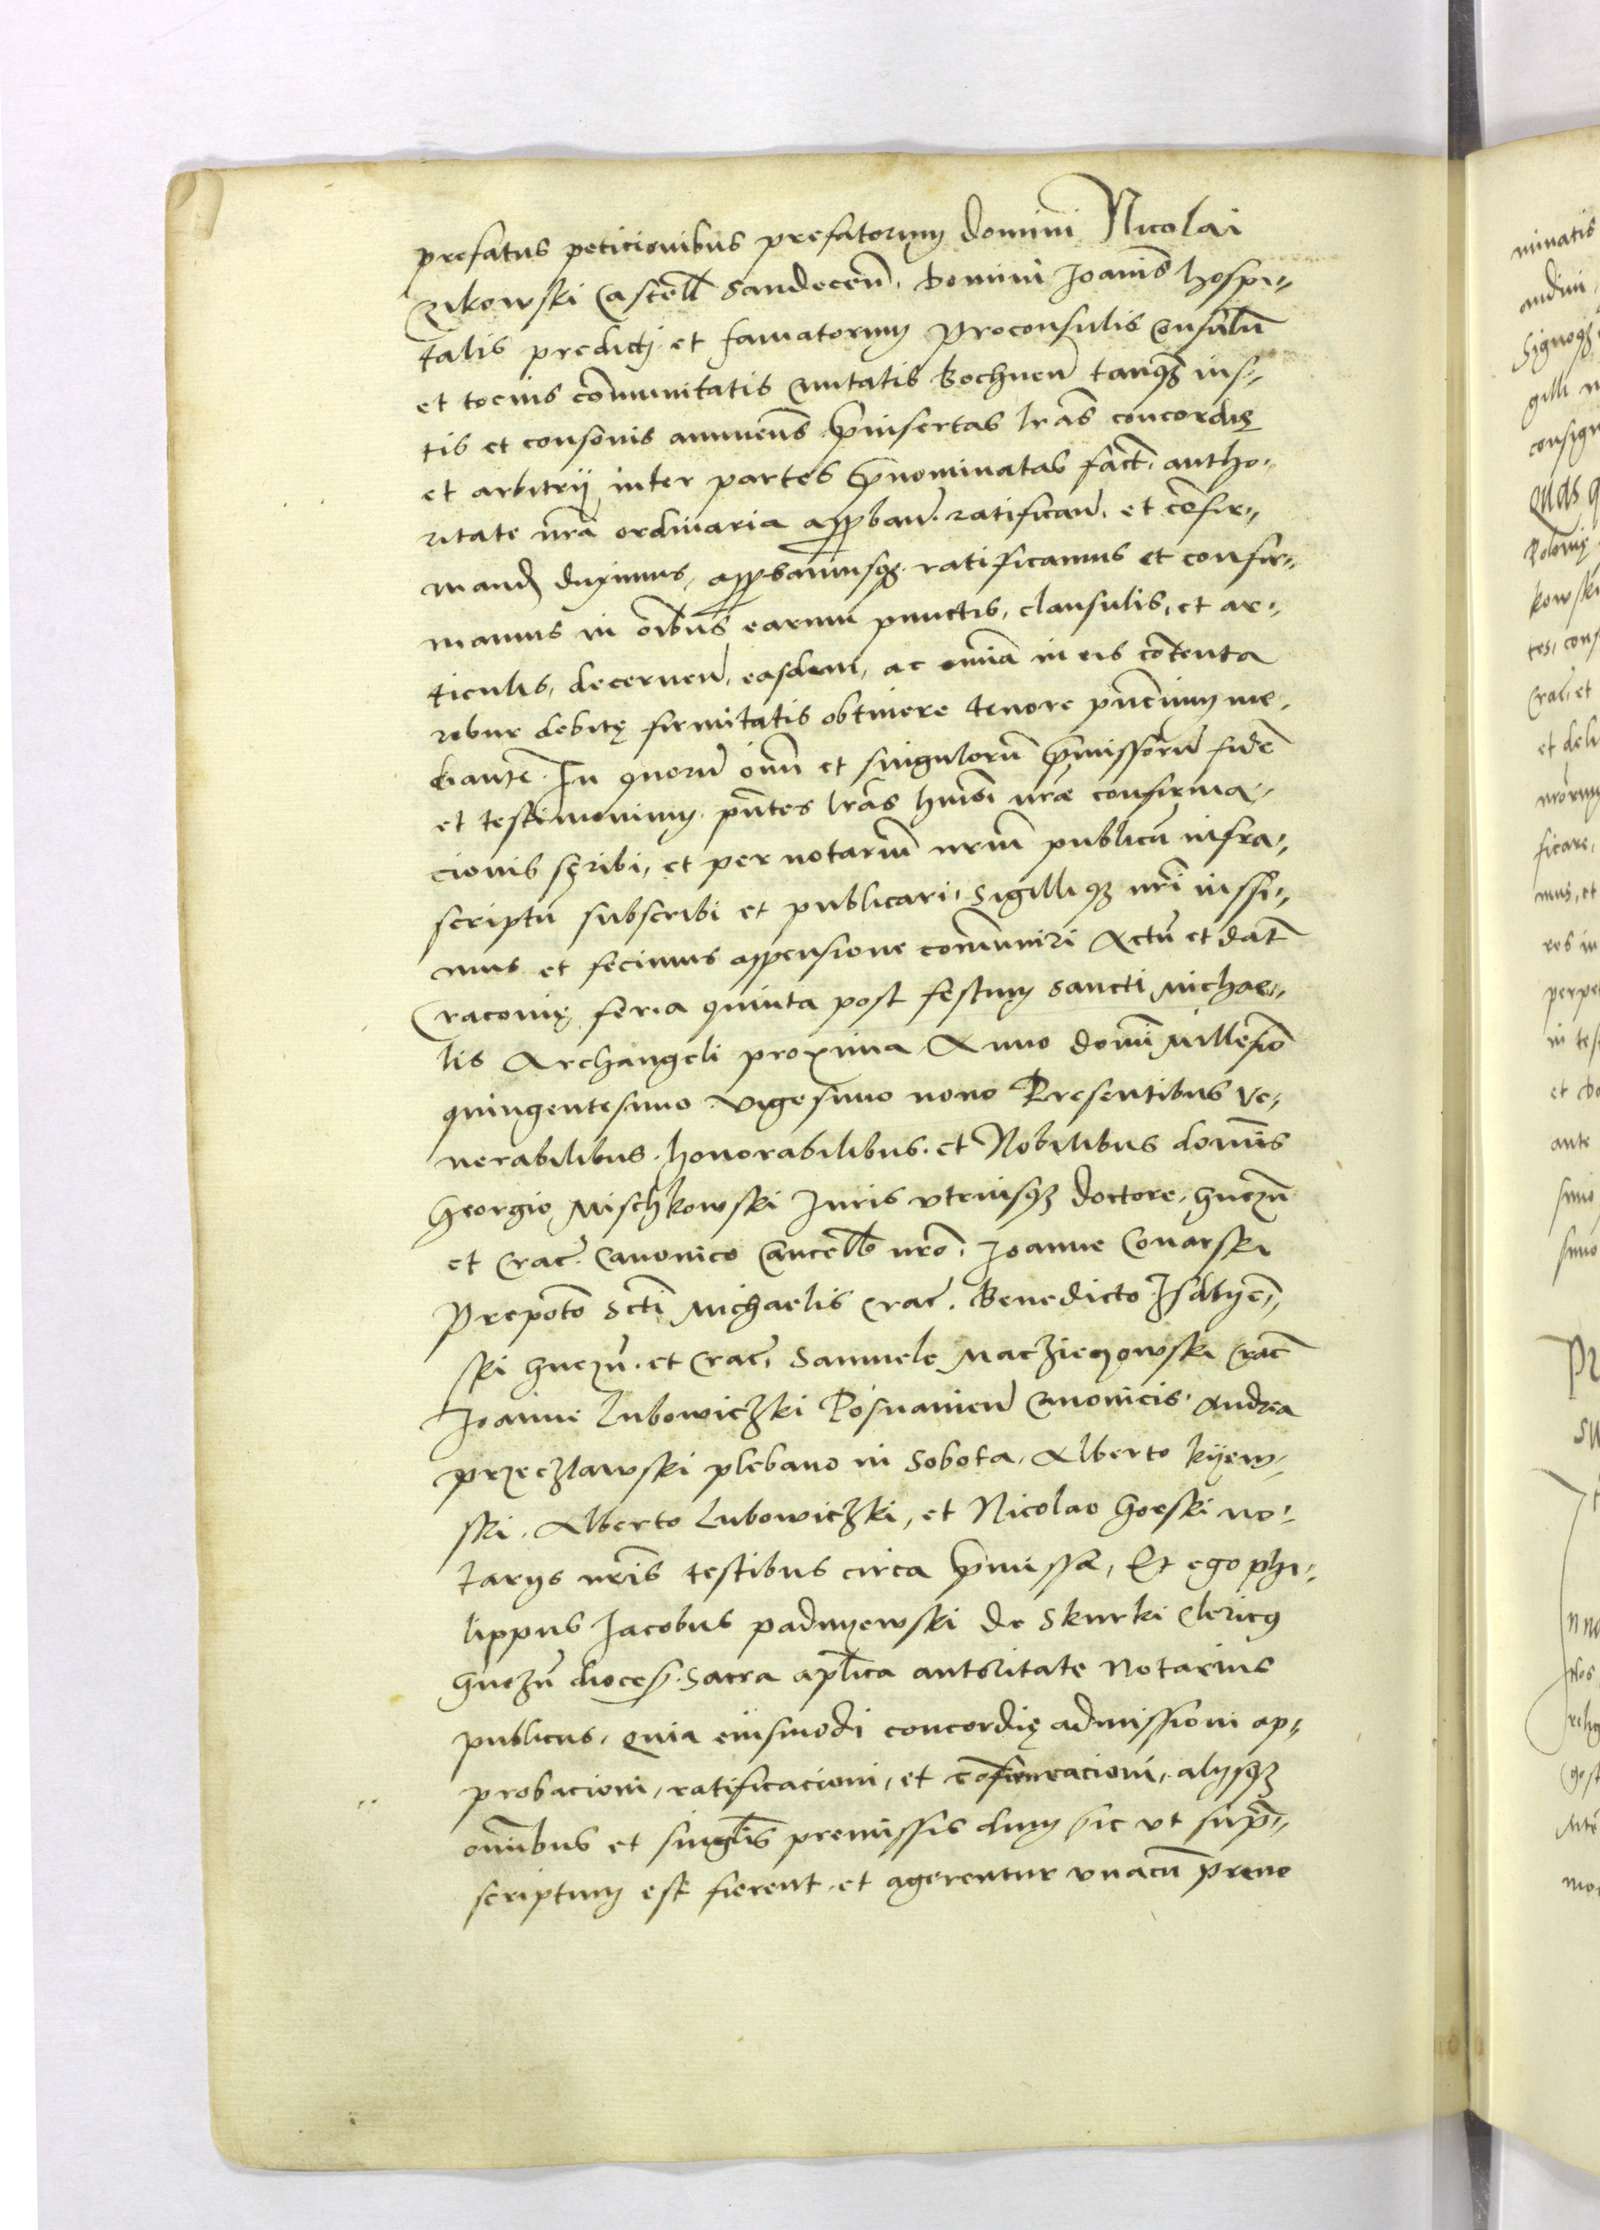 prefatus peticionibus prefatorum domini Nicolai
Zikowski Castell Sandeceñ. Domini Joanis hospi-
talis predicti et famatorum Proconsulis Consulũ
et tocius cõmunitatis Civitatis Bochneñ tanq̃ ius-
tis et consonis annuens p̃insertas lr̃as concordię
et arbitrij inter partes p̃nominatas fact. autho-
ritate nr̃a ordinaria approband. ratificand. et cõfir-
mand duximus, approbamusq̃ ratificamus et confir-
mamus in oĩbus earum punctis, clausulis, et ar-
ticulis, decernen̄, easdem, ac omnia in eis cõtenta
robur debitę firmitatis obtinere tenore pñcium me-
diantẽ. In quorũ oĩm et singulorũ p̃missorũ fidẽ
et testimonium pñtes lr̃as huiusmõi nr̃ae confirma-
cionis scribi, et per notariũ nr̃um publicũ infra-
scriptũ subscribi et publicari, Sigilliq̃ nr̃i iussi-
mus et fecimus appensione cõmuniri Actũ et dat̃
Cracovię feria quinta post festum sancti Michae-
lis Archangeli proxima Anno domini Millesimo
quingentesimo vigesimo nono Presentibus ve-
nerabilibus. honorabilibus. et Nobilibus dominis
Georgio Mischkowski Juris utriusq̃ doctore, Gnezñ
et Crac̃. Canonico Cancell̃ nr̃o. Joanne Conarski
Prepoto Scti Michaelis Crac̃. Benedicto Isdbyen-
ski Gnezñ. et Crac̃, Samuele Macziegowski Crac̃
Joanne Lubowiczki Posnanieñ Canonicis. Andrea
przeczlawski plebano in Sobota, Alberto kijew-
ski. Alberto Lubowiczki, et Nicolao Gorski no-
tarijs nr̃is testibus circa p̃missa, Et ego phi-
lippus Jacobus padnyewski de Skurki Clericus
Gnezñ dioces̃. Sacra aplĩca autoritate Notarius
publicus, Quia eiusmodi concordię admissioni ap-
probacioni, ratificacioni, et cõfirmacioni, alijsq̃
omnibus et singulis premissis dum sic ut supra-
scriptum est fierent. et agerentur unacũ preno